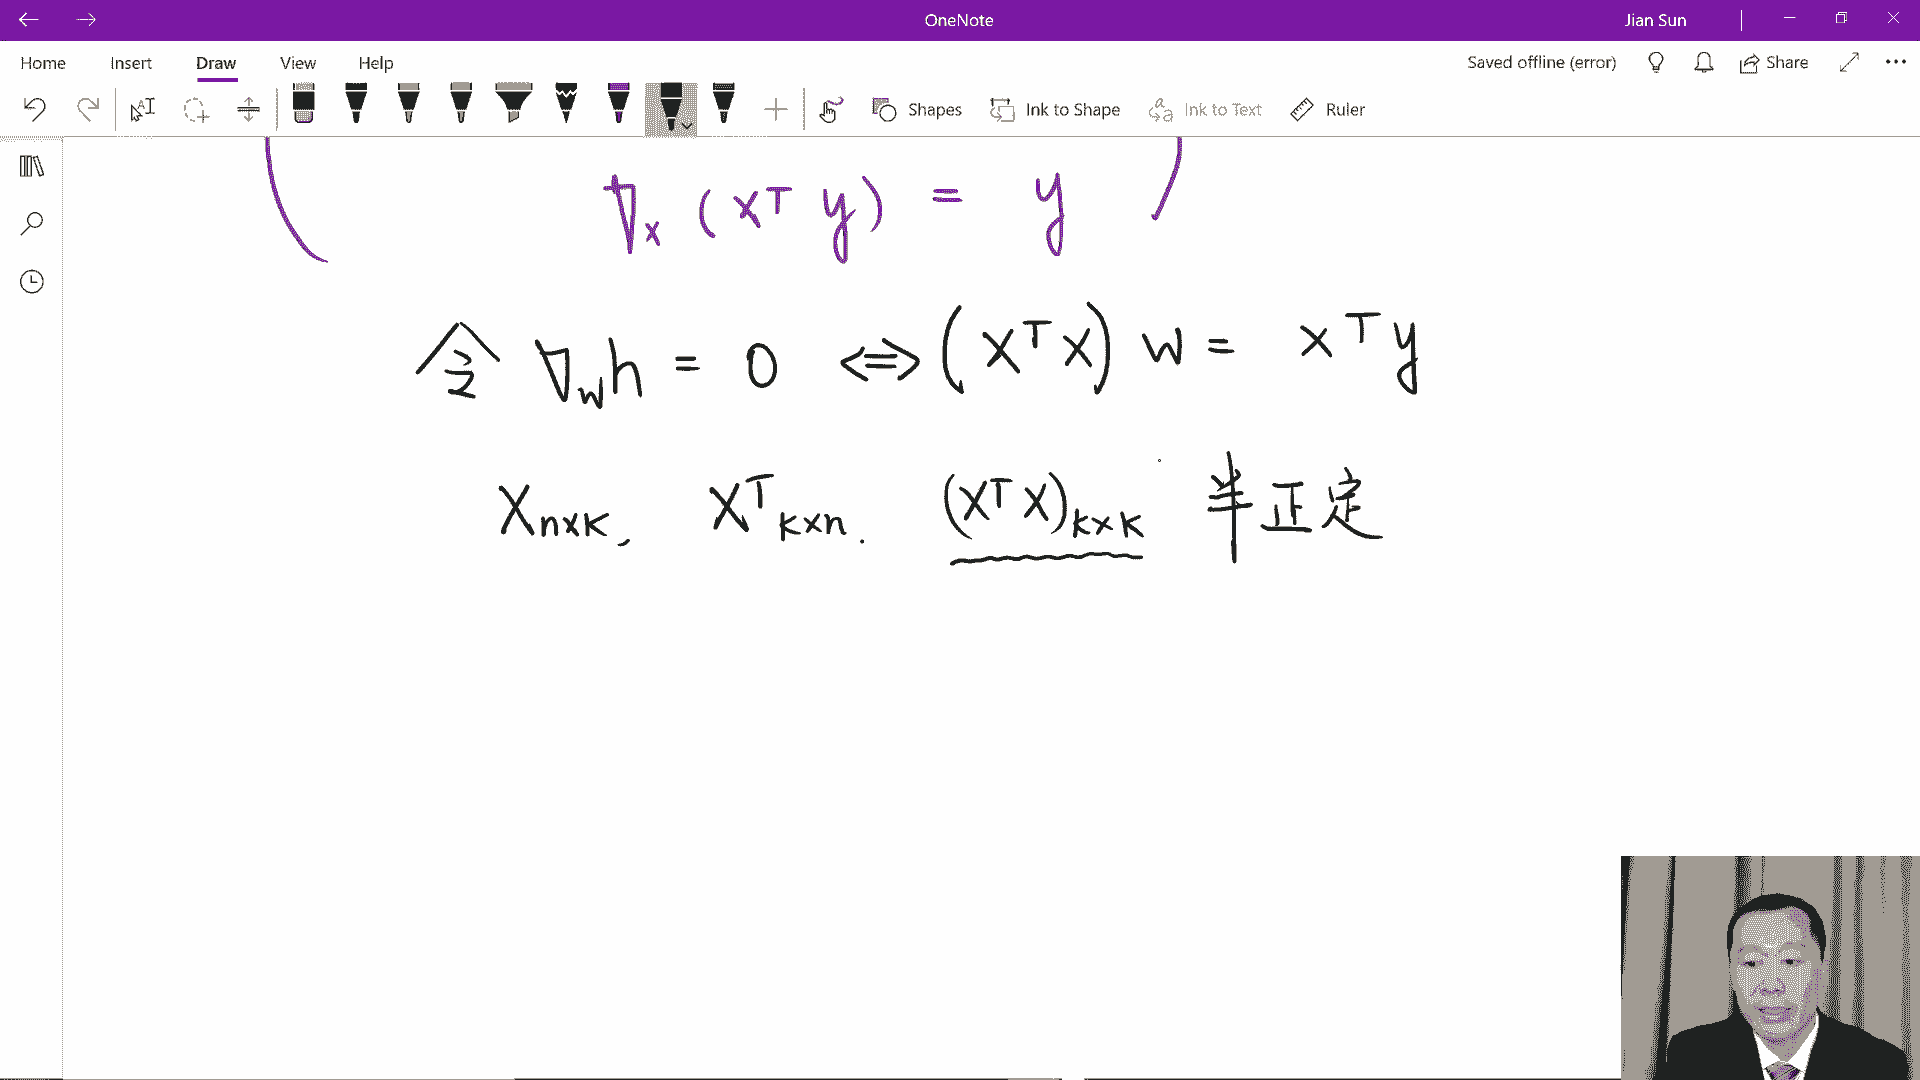 OneNote
Jian Sun
Home Insert Draw View Help
Saved offline (error) Share
Shapes Ink to Shape Ink to Text Ruler
∇x (xᵀ y) = y
令 ∇w h = 0 ⟺ (XᵀX) w = Xᵀy
Xn×k, Xᵀk×n. (XᵀX)k×k 半正定